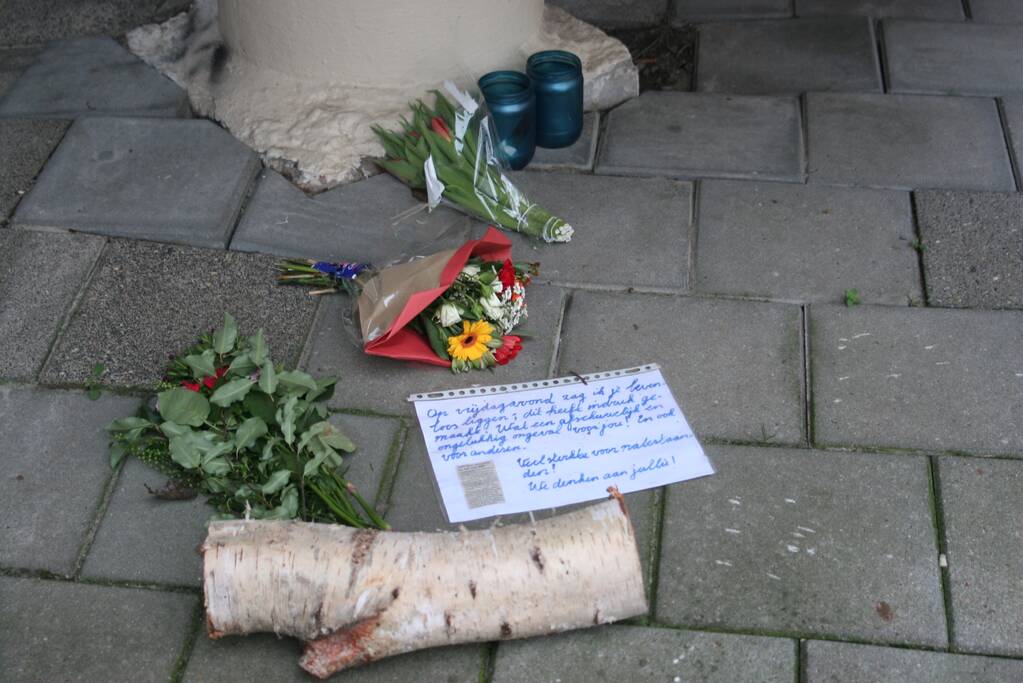 Op vrijdagavond zag ik je leven-
loos liggen; dit heeft indruk ge-
maakt! Wat een afschuwelijk en
ongelukkig ongeval voor jou! En ook
voor anderen.
Veel sterkte voor nabestaan-
den!
We denken aan jullie!